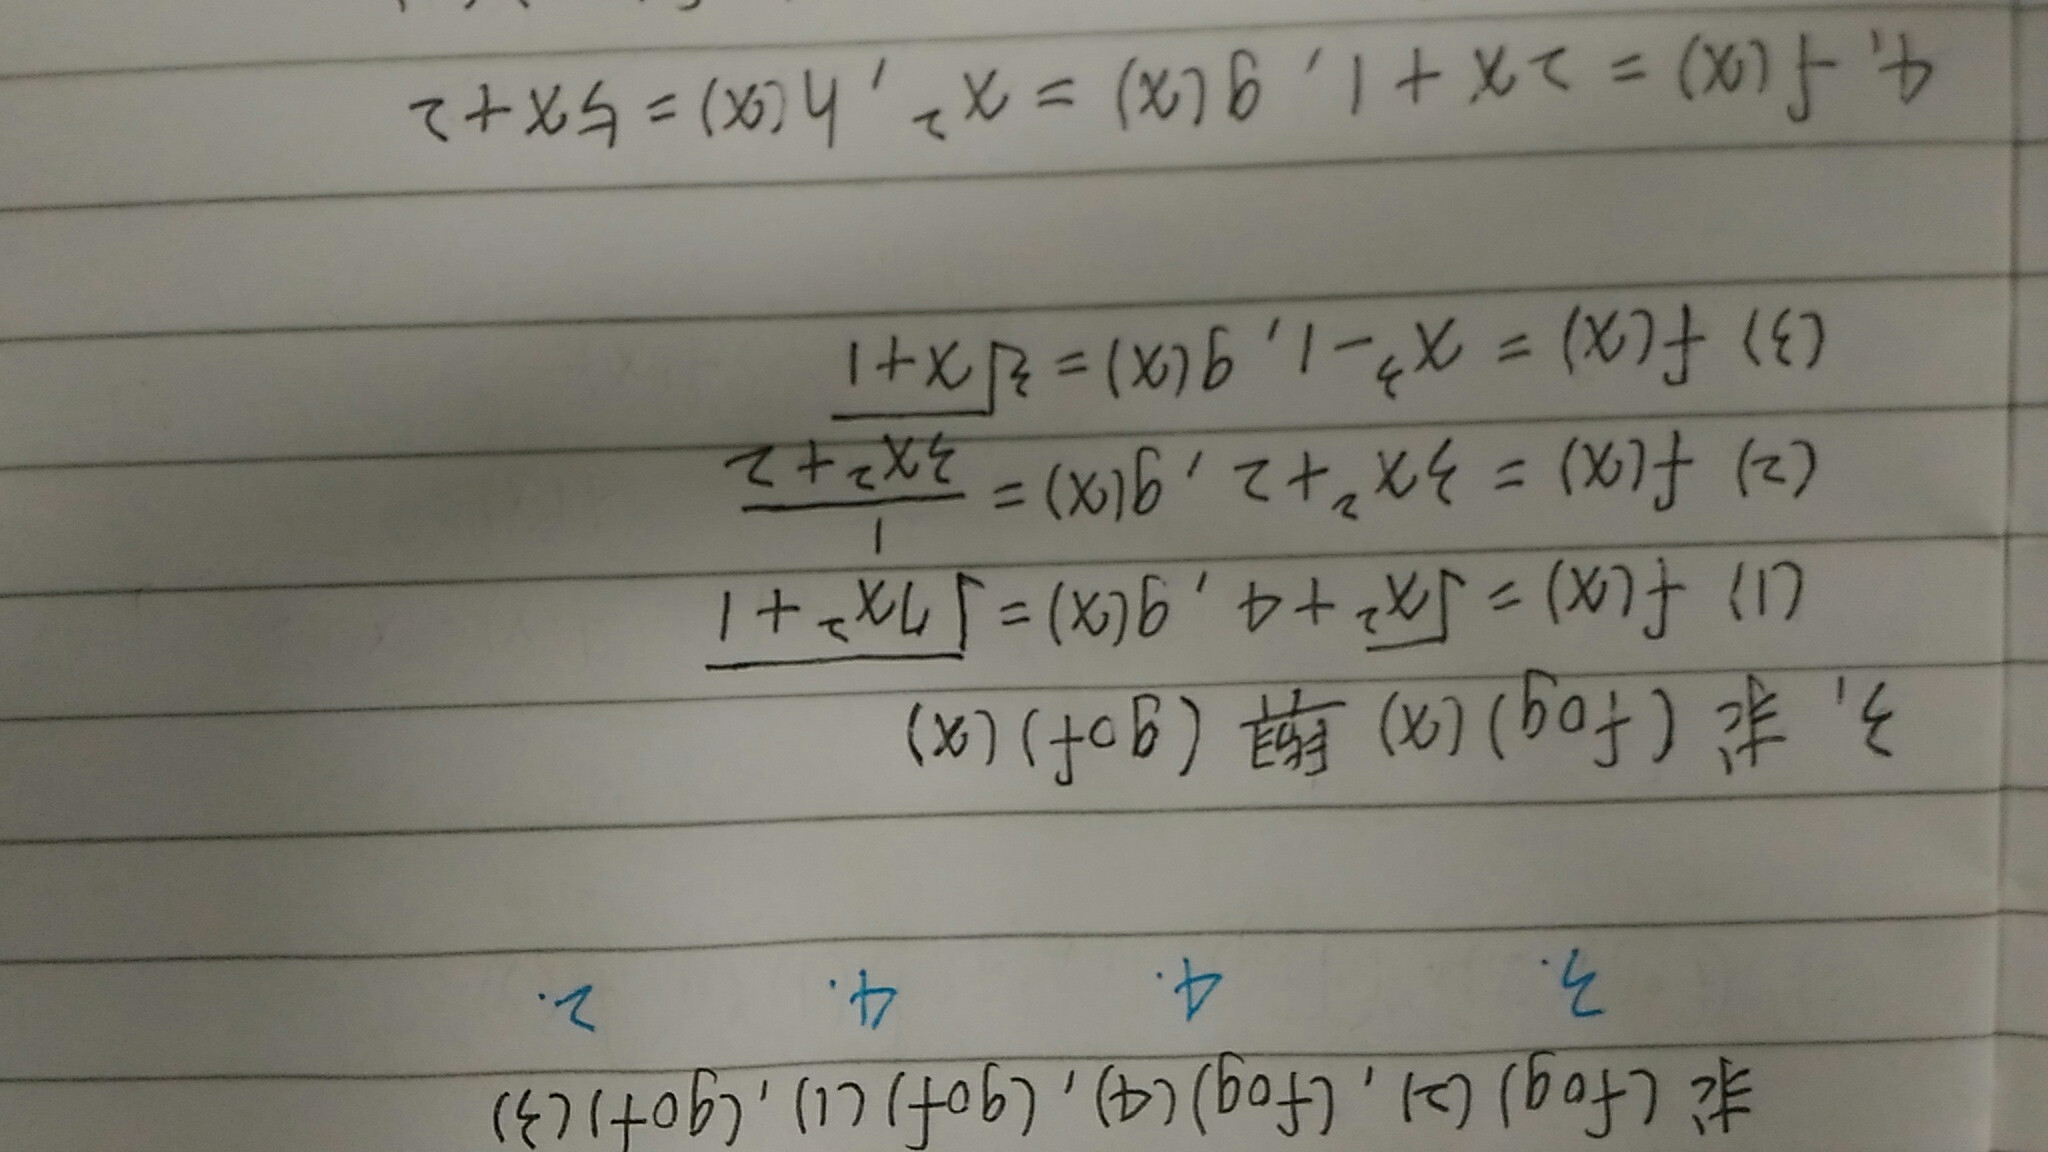 求 (fog) (2), (fog) (4), (gof) (1), (gof) (3)
3. 4. 4. 2.
3. 求 (fog) (x) 與 (gof) (x)
(1) f(x) = √x² + 4, g(x) = √7x² + 1
(2) f(x) = 3x² + 2, g(x) = 1/(3x² + 2)
(3) f(x) = x³ - 1, g(x) = ∛x + 1
4. f(x) = 2x + 1, g(x) = x², h(x) = 5x + 2